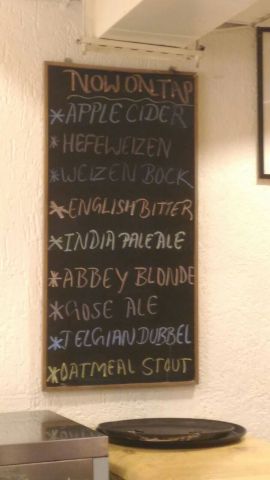 NOW ON TAP
*APPLE CIDER
*HEFEWEIZEN
*WEIZEN BOCK
*ENGLISH BITTER
*INDIA PALE ALE
*ABBEY BLONDE
*GOSE ALE
*TELGIAN DUBBEL
*OATMEAL STOUT